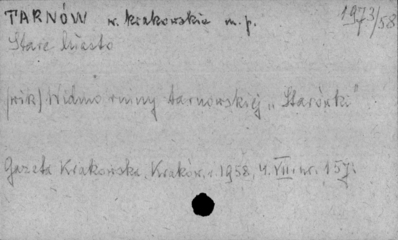 TARNÓW w. krakowskie m.p. 1973/58
Stare Miasto
(wik) Widmo ruiny tarnowskiej "Starówki"
Gazeta Krakowska, Kraków, 1958, 4.VII. nr. 157.